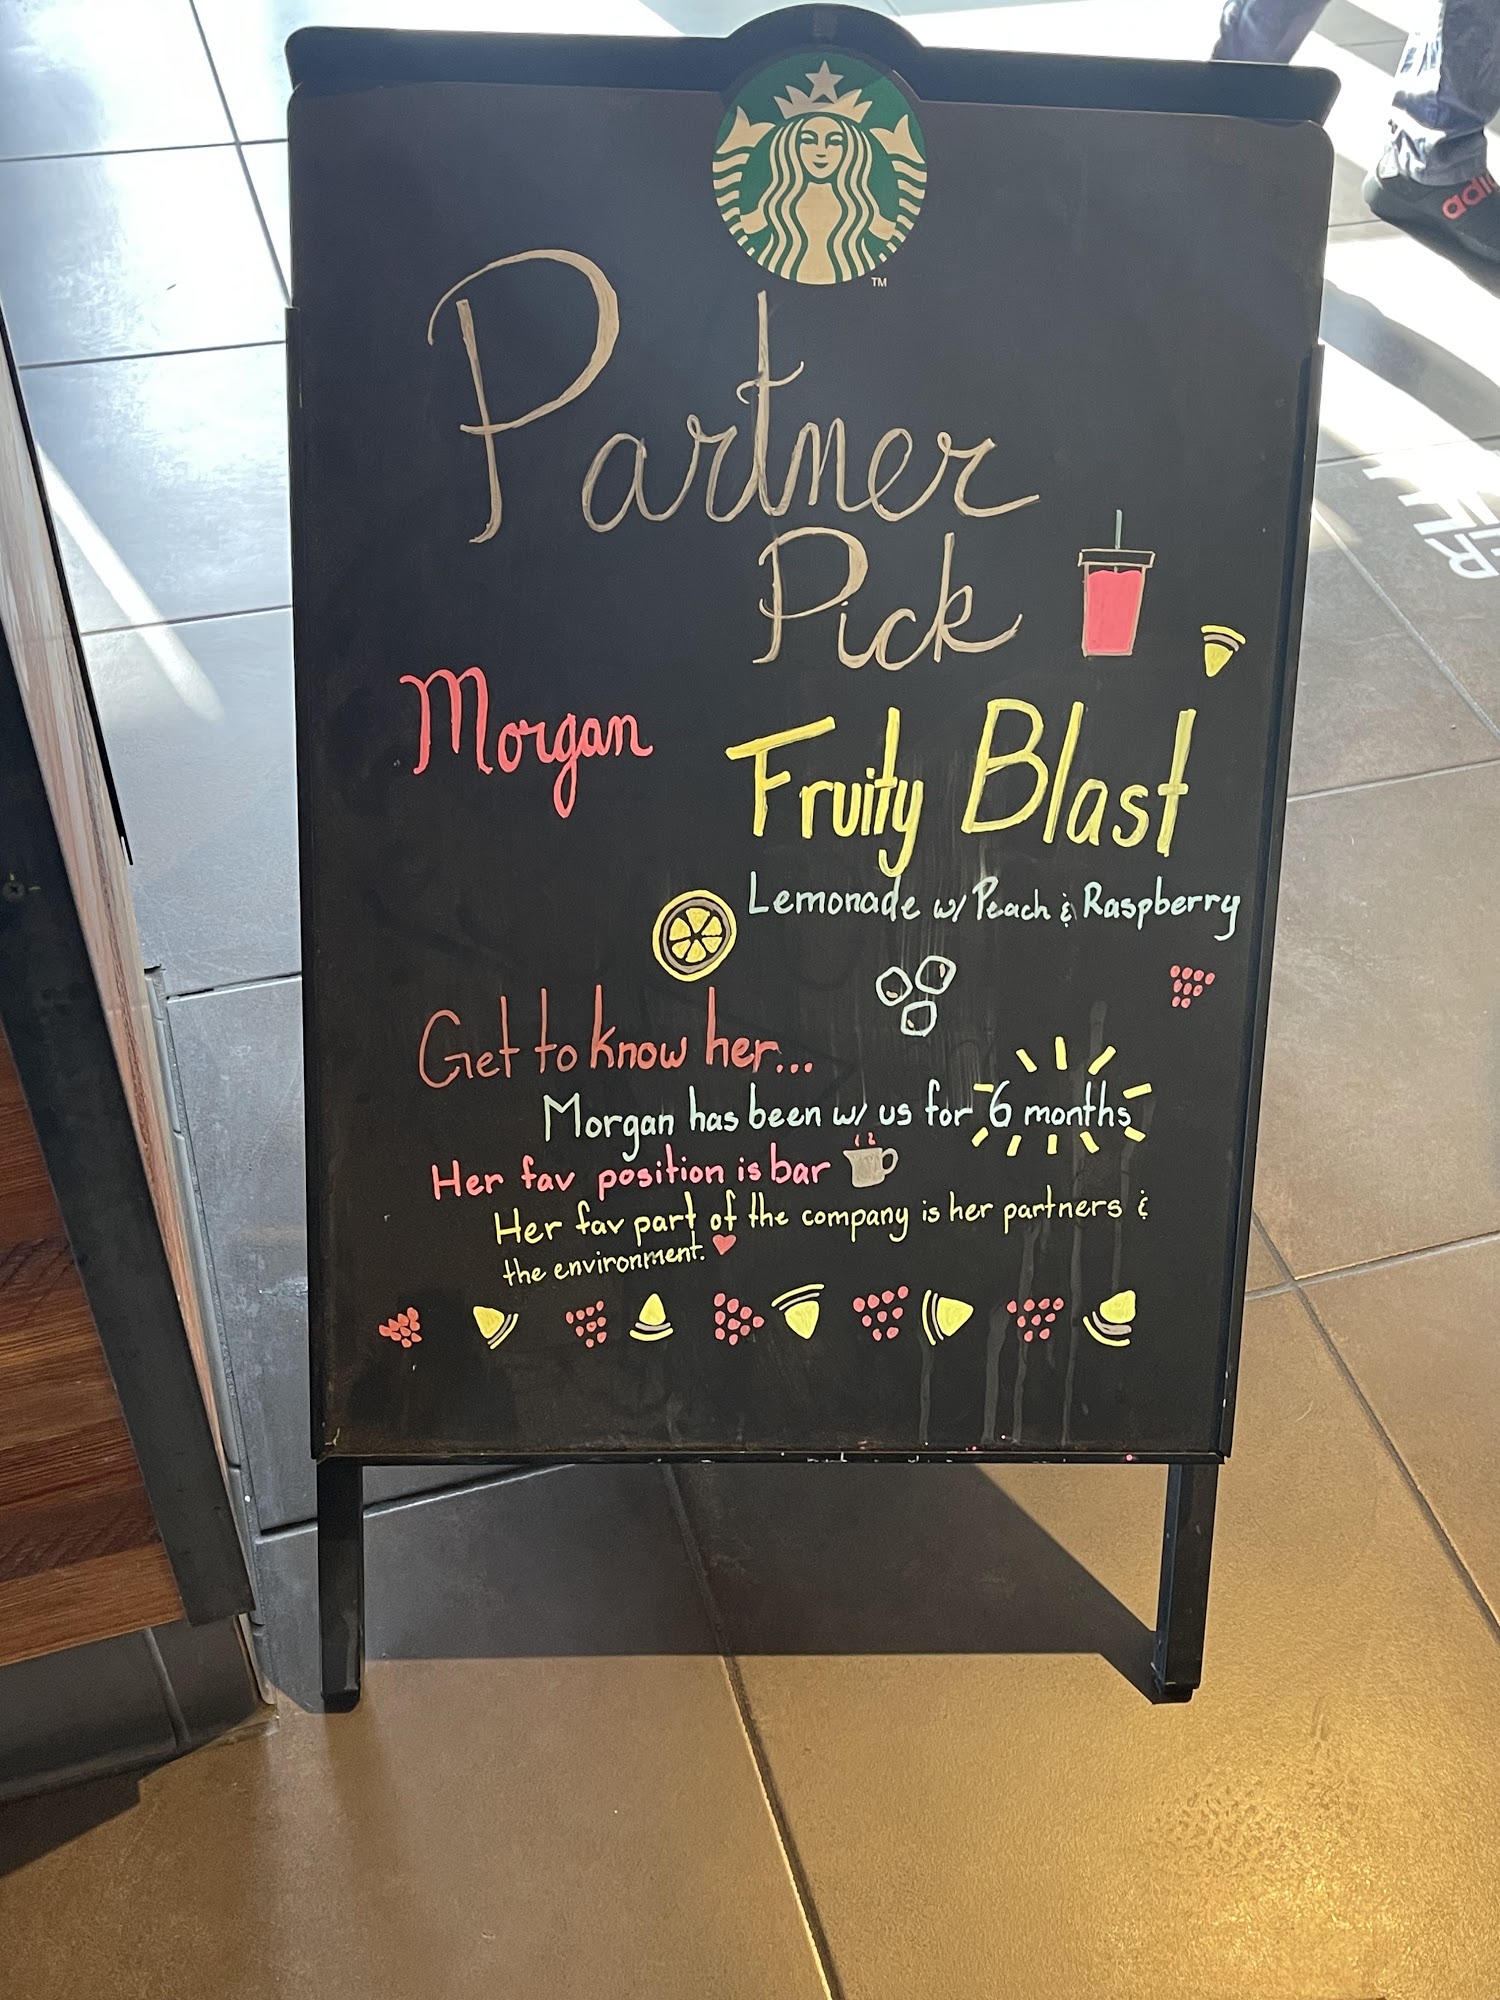 TM
Partner
Pick
Morgan
Fruity Blast
Lemonade w/ Peach & Raspberry
Get to know her...
Morgan has been w/ us for 6 months
Her fav position is bar
Her fav part of the company is her partners &
the environment.